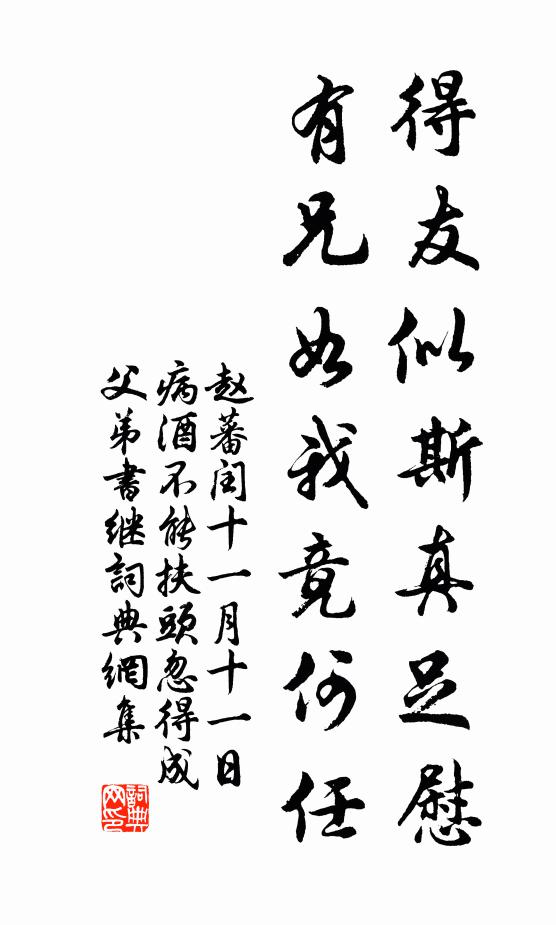 得友似斯真足慰
有兄如我竟何任
赵蕃闰十一月十一日
病酒不能扶頭忽得成
父弟書继詞典網集
詞典网印